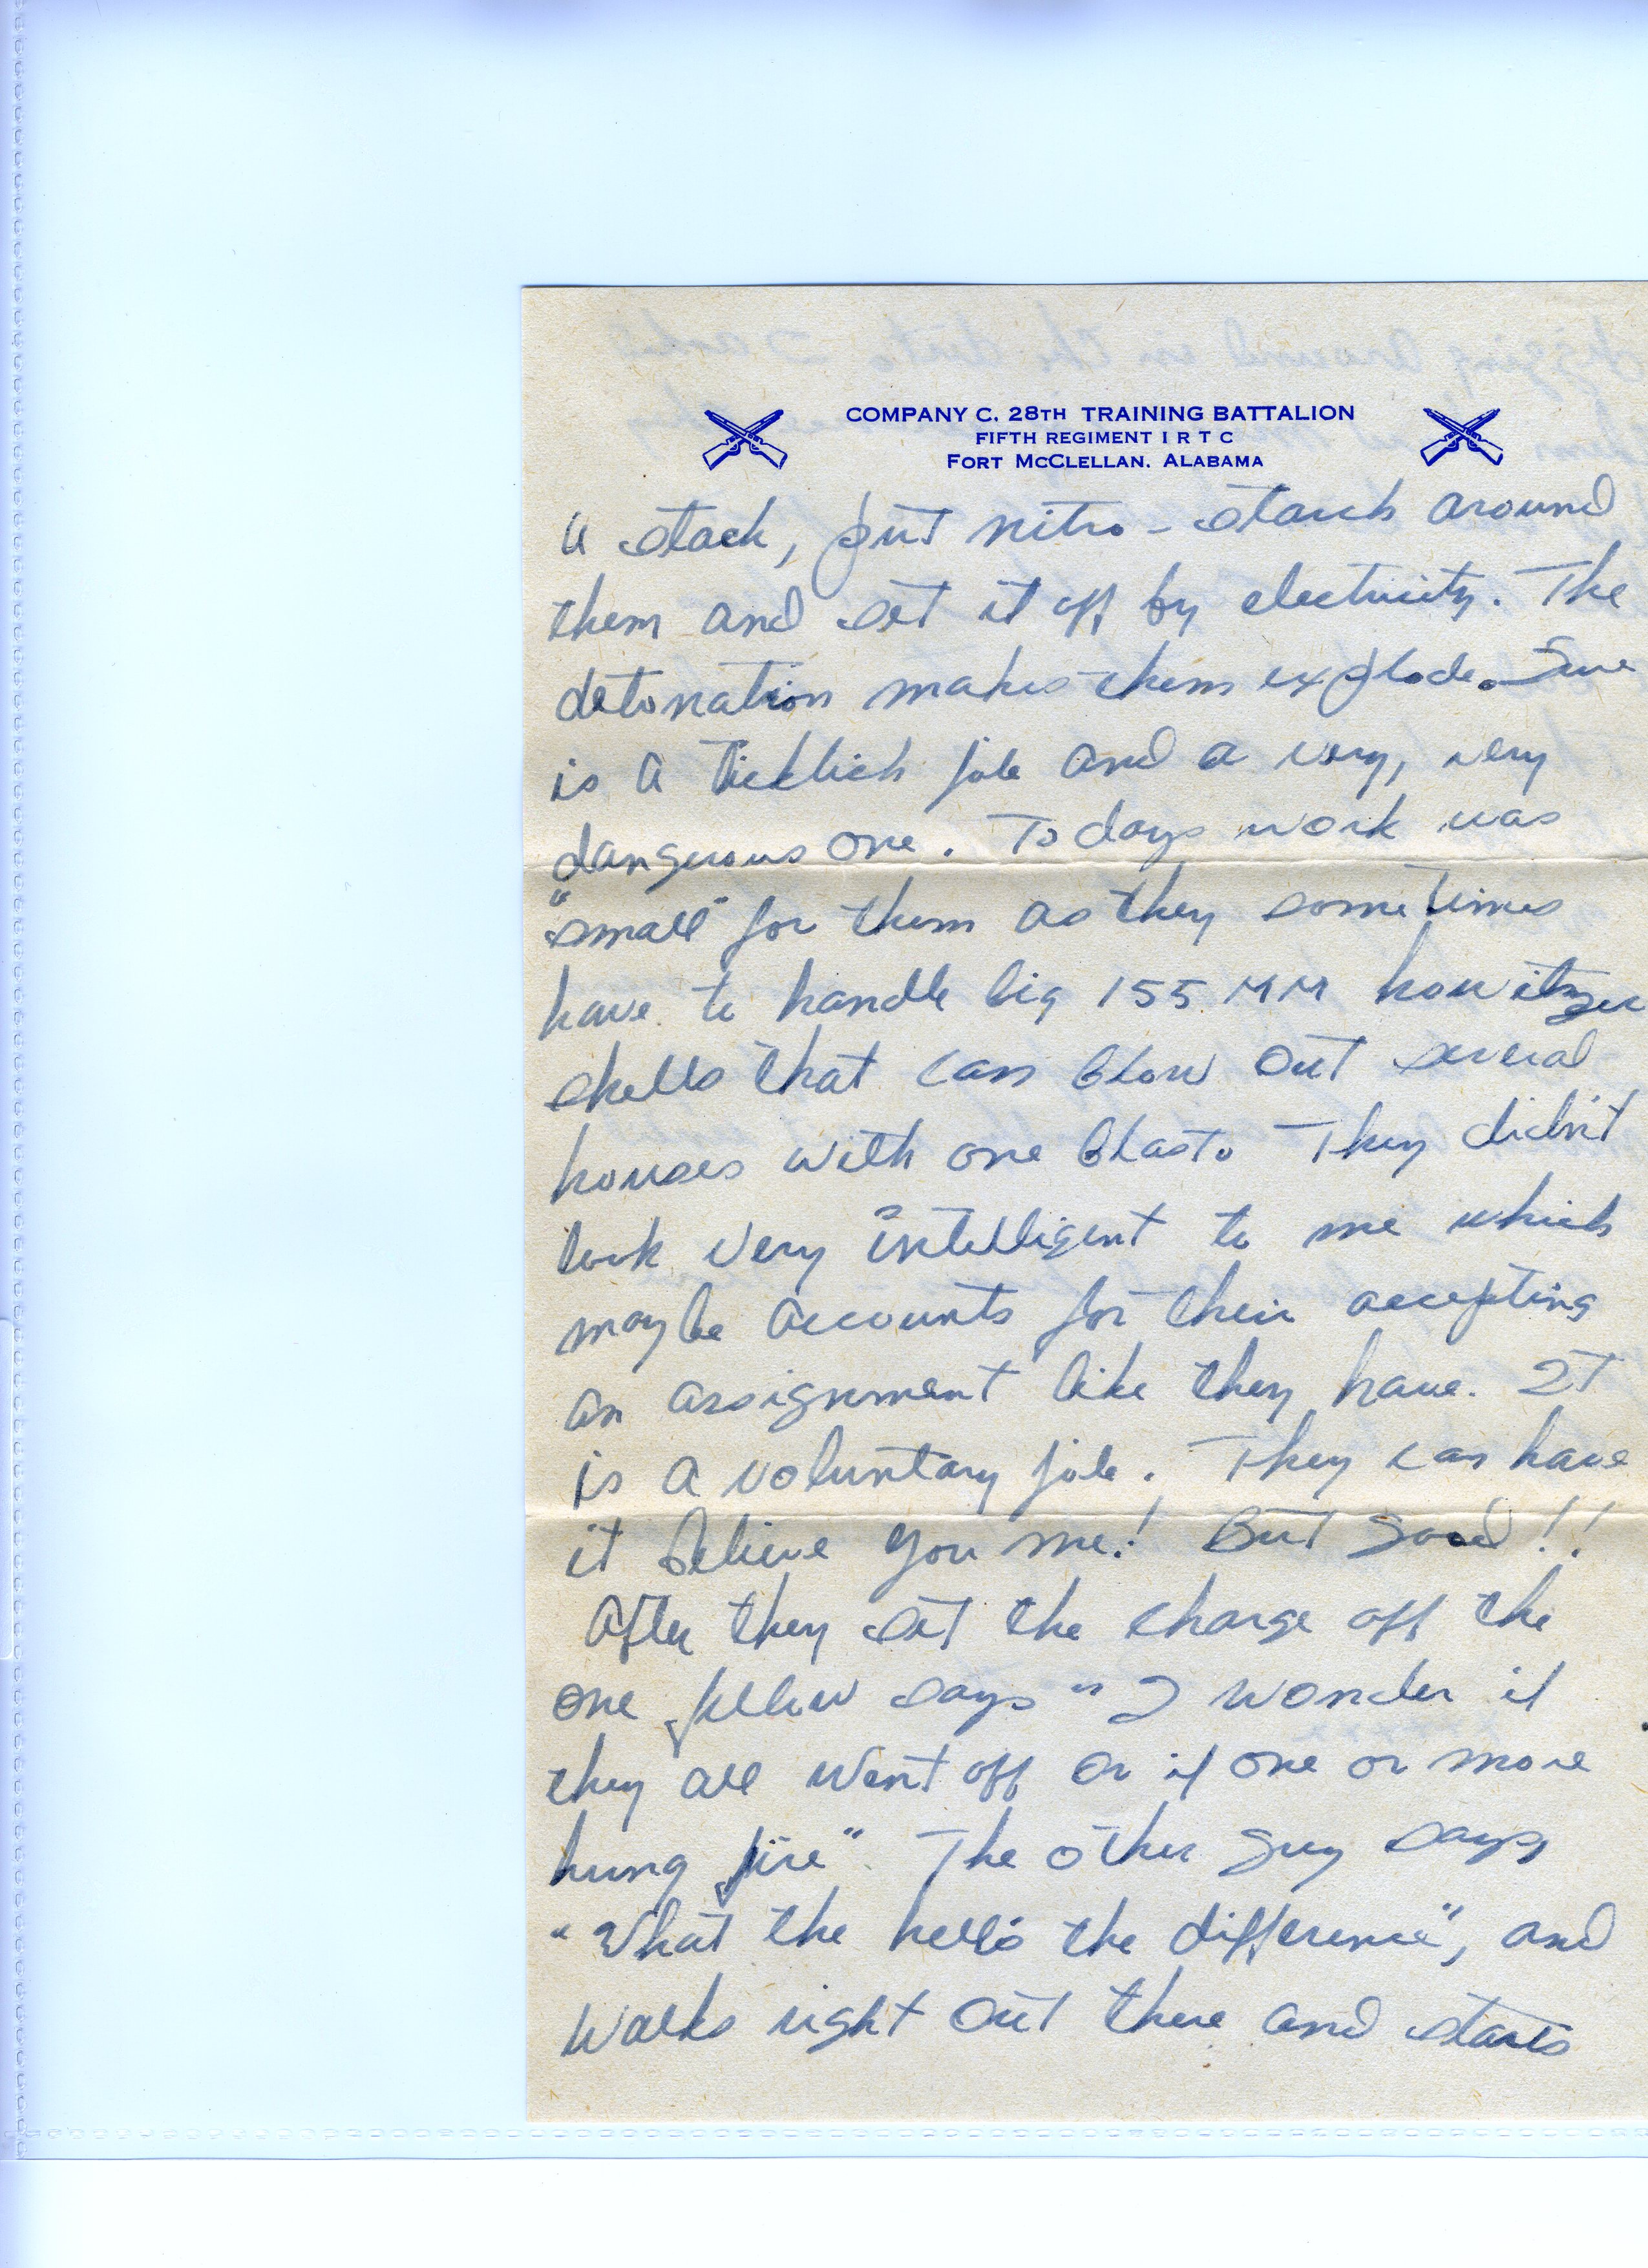 COMPANY C. 28TH TRAINING BATTALION
FIFTH REGIMENT I R T C
FORT MCCLELLAN. ALABAMA
a stack, put nitro-starch around
them and set it off by electricity. The
detonation makes them explode. Sure
is a ticklish job and a very, very
dangerous one. Todays work was
"small" for them as they sometimes
have to handle big 155 MM howitzer
shells that can blow out several
houses with one blast. They didn't
look very intelligent to me which
maybe accounts for their accepting
an assignment like they have. It
is a voluntary job. They can have
it believe you me! But good!!
After they set the charge off the
one fellow says "I wonder if
they all went off or if one or more
hung fire". The other guy says
"What the hell's the difference", and
walks right out there and starts